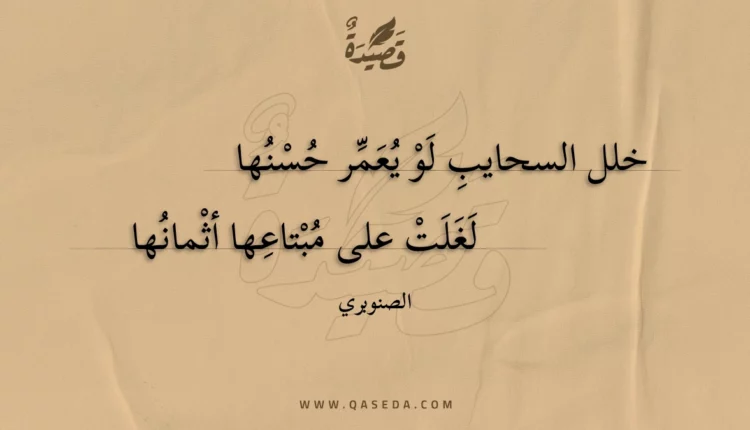 قَصِيْدَةٌ
خلل السحايبِ لَوْ يُعَمِّر حُسْنُها
لَغَلَتْ على مُبْتاعِها أثْمانُها
الصنوبري
WWW.QASEDA.COM